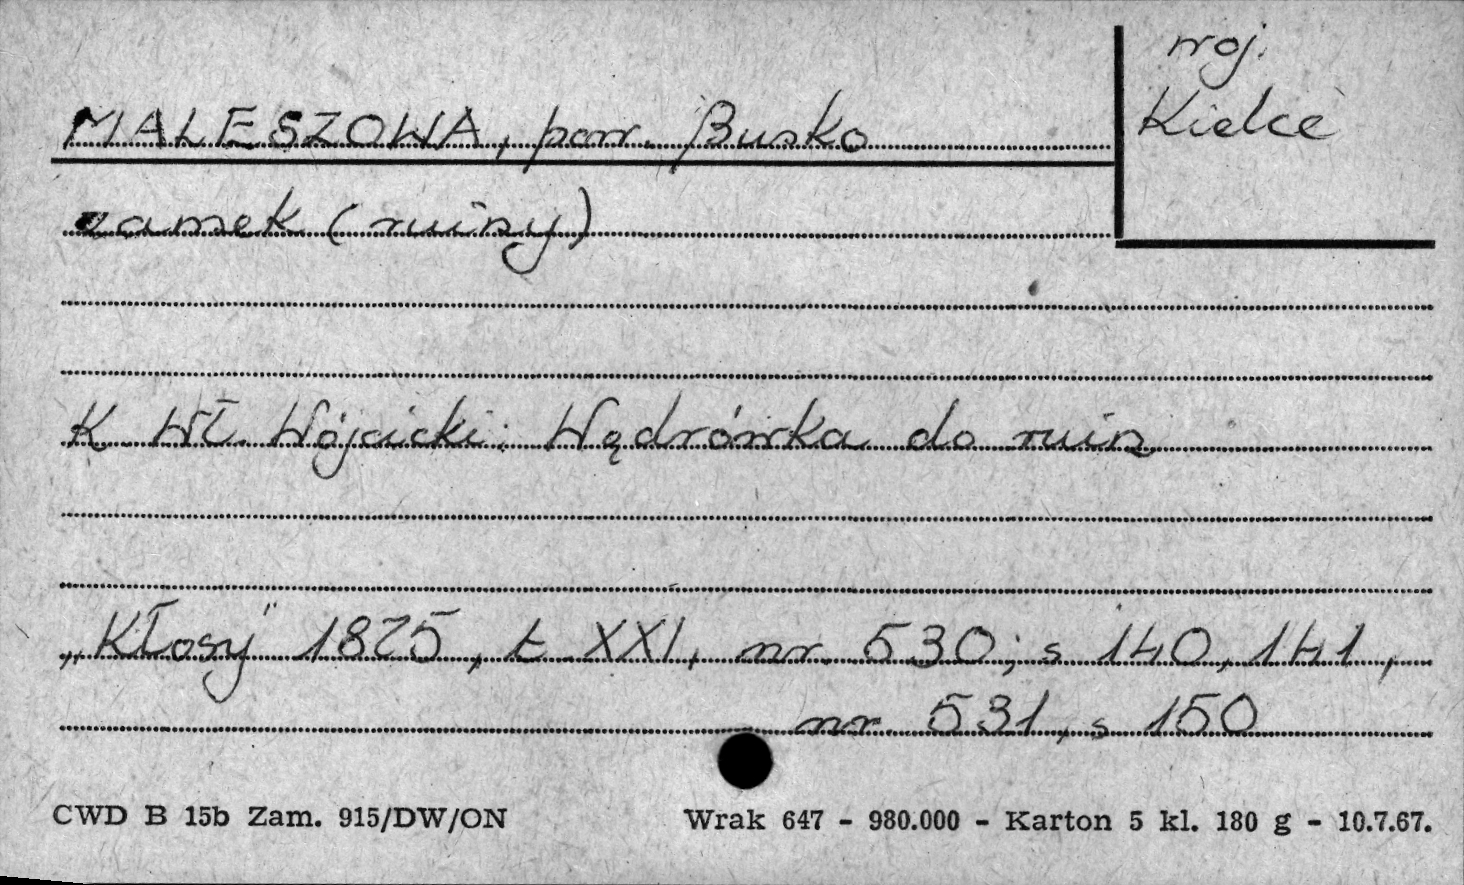 woj.
Kielce
MALESZOWA, pow. Busko
zamek (ruiny)
K Wł. Wójcicki: Wędrówka do ruin
„Kłosy" 1875, t XXI, nr. 530; s 140, 141,
nr. 531, s 150
CWD B 15b Zam. 915/DW/ON Wrak 647 - 980.000 - Karton 5 kl. 180 g - 10.7.67.